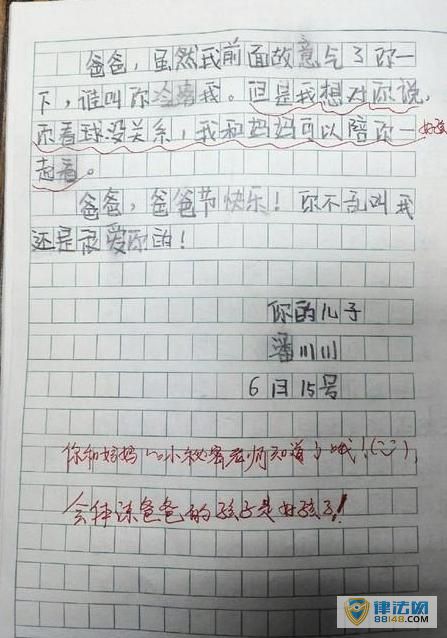 爸爸，虽然我前面故意气了你一
下，谁叫你冷落我。但是我想对你说，
你看球没关系，我和妈妈可以陪你一
好孩
起看。
爸爸，爸爸节快乐！你不乱叫我
还是很爱你的！
你的儿子
潘川川
6日15号
你和妈妈的小秘密老师知道了哦！(
会体谅爸爸的孩子是好孩子！
律法网
88148.com